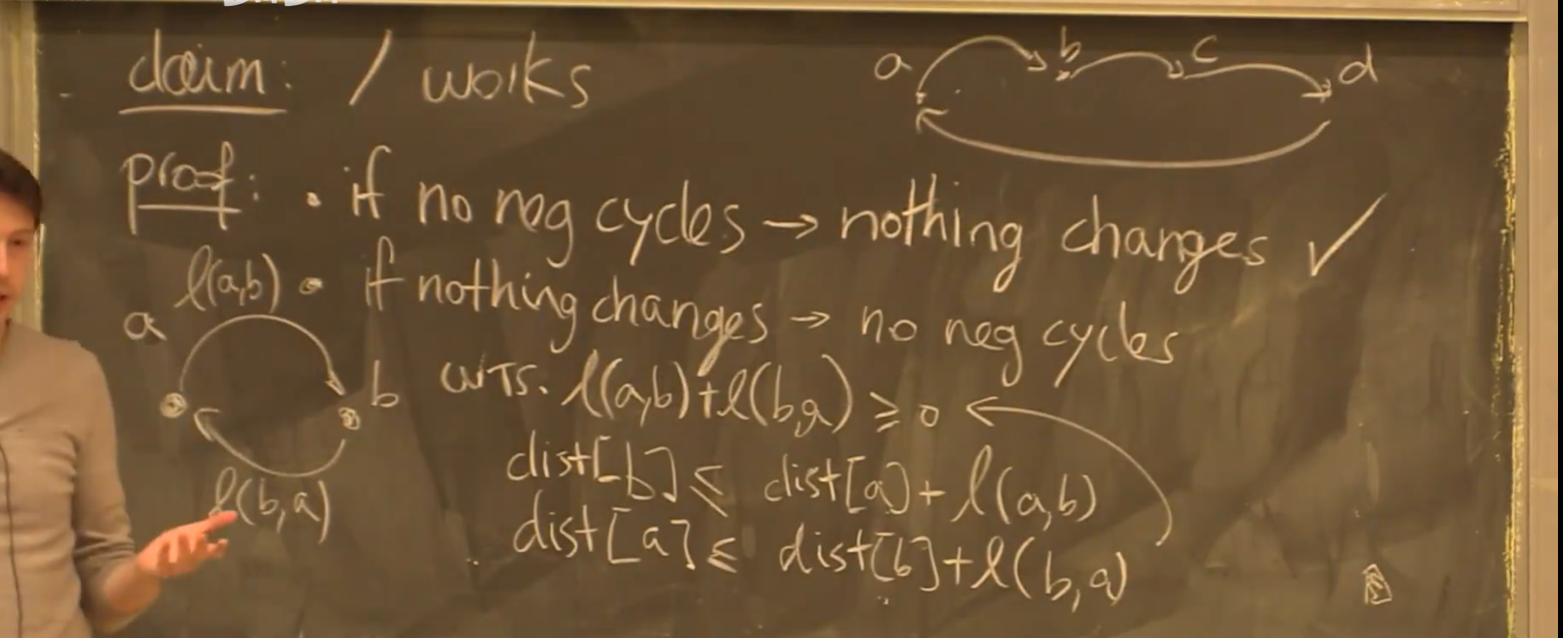 claim: / works
a b c d
proof: • if no neg cycles → nothing changes ✓
l(a,b) • if nothing changes → no neg cycles
a
b WTS. l(a,b)+l(b,a) ≥ 0
dist[b] ≤ dist[a]+l(a,b)
l(b,a)
dist[a] ≤ dist[b]+l(b,a)